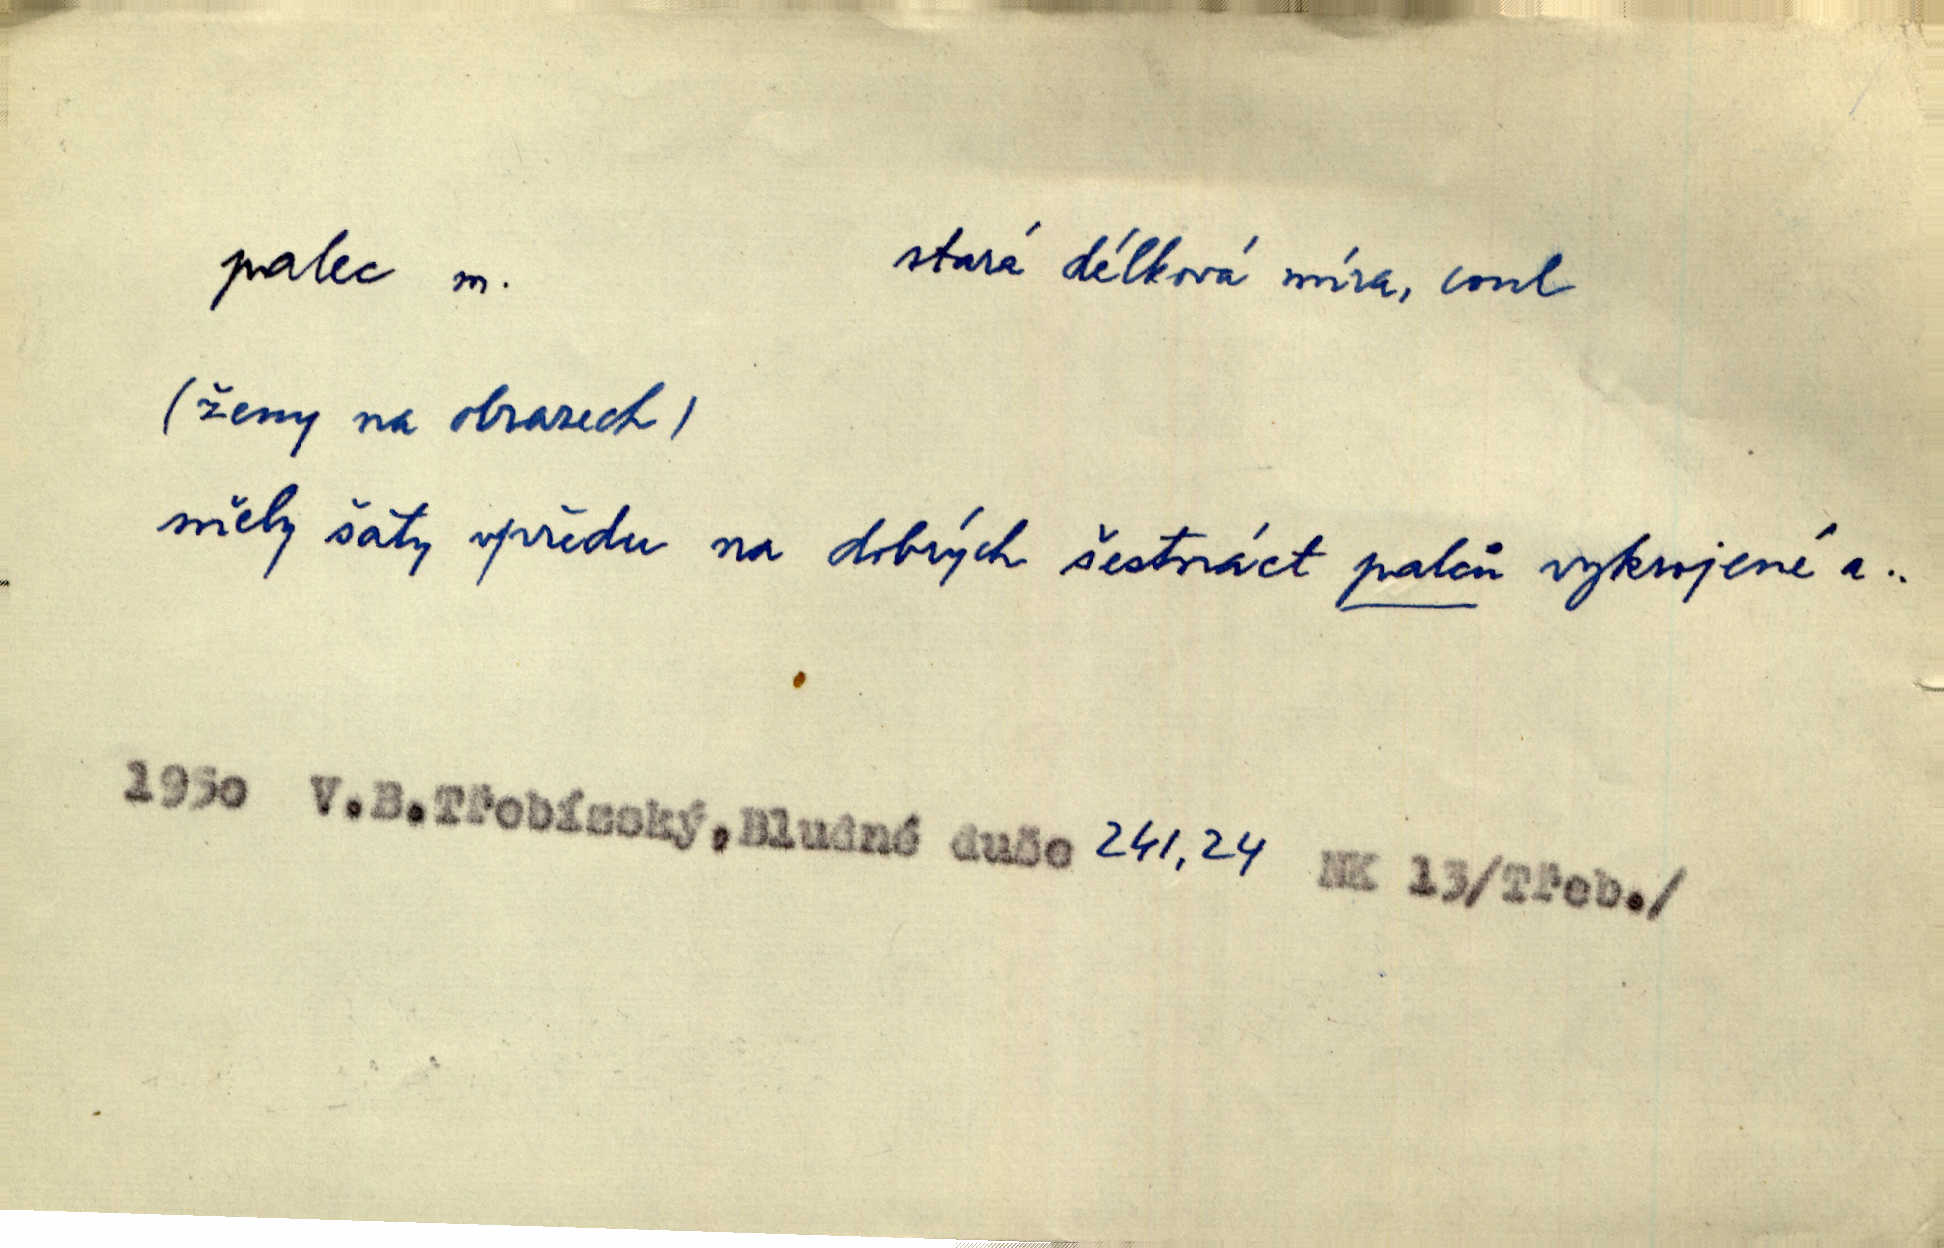 palec m. stará délková míra, coul
(ženy na obrazech)
měly šaty vpředu na dobrých šestnáct palců vykrojené a..
1950 V.B.Třebízský,Bludné duše 241,24 NK 13/Třeb./